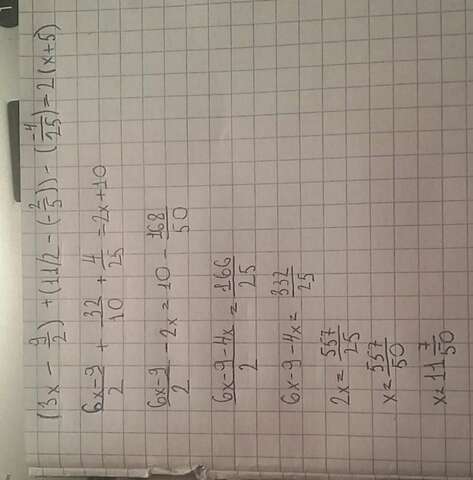 (3x - 9/2) + (11/2 - (-2/5)) - (-4/25) = 2(x+5)
6x-9/2 + 32/10 + 4/25 = 2x+10
6x-9/2 - 2x = 10 - 168/50
6x-9-4x/2 = 166/25
6x-9-4x = 332/25
2x = 557/25
x = 557/50
x = 11 7/50